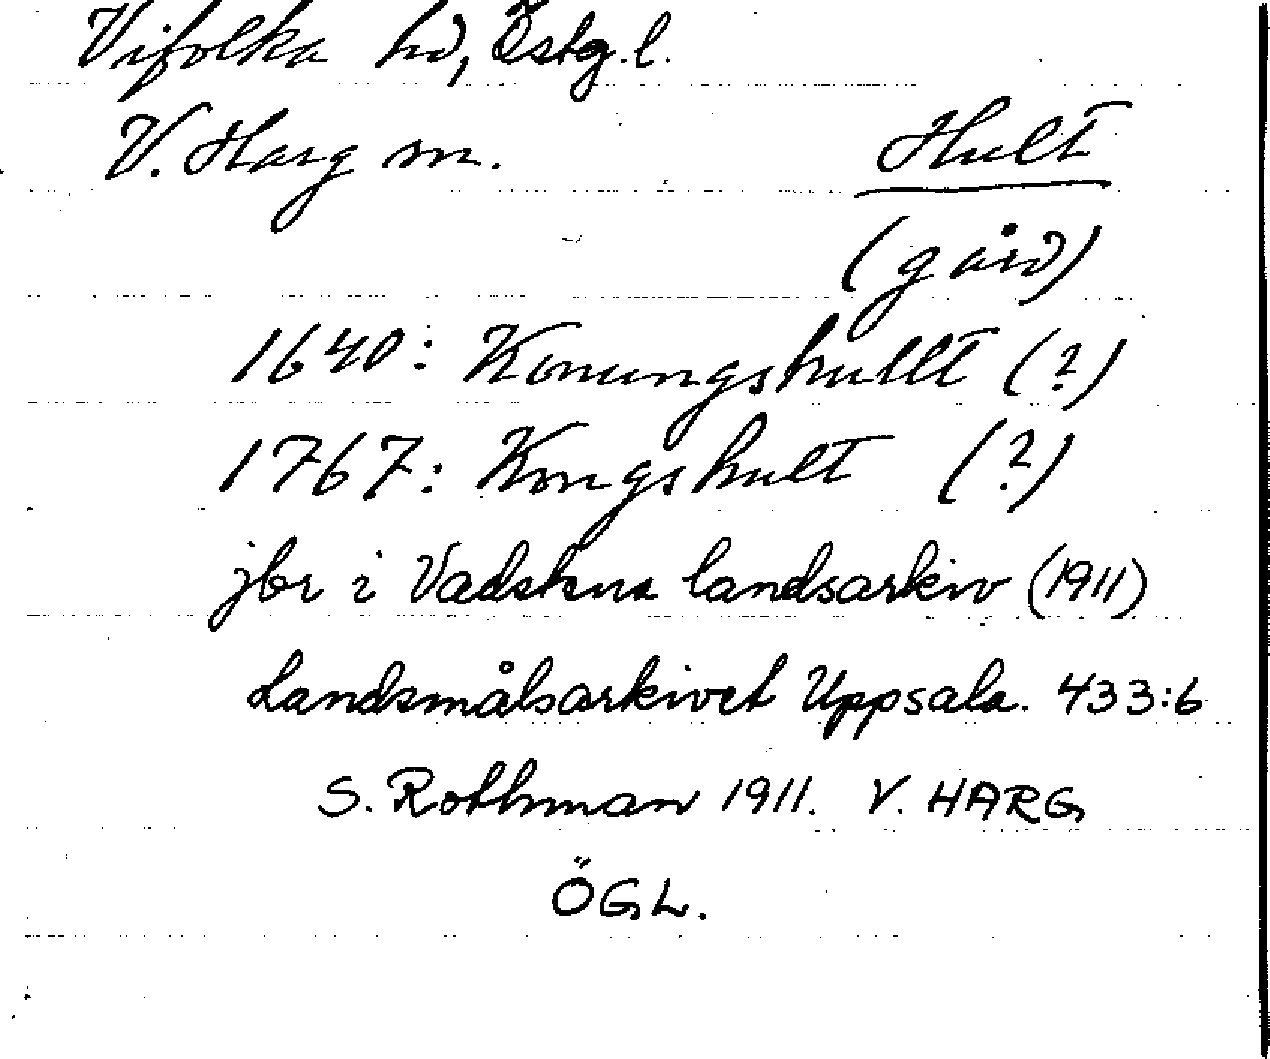 Vifolka hd, Östg.l.
V. Harg sn. Hult
(gård)
1640: Konungshullt (?)
1767: Kongshult (?)
jbr i Vadstena landsarkiv (1911)
Landsmålsarkivet Uppsala. 433:6
S. Rothman 1911. V. HARG
ÖGL.